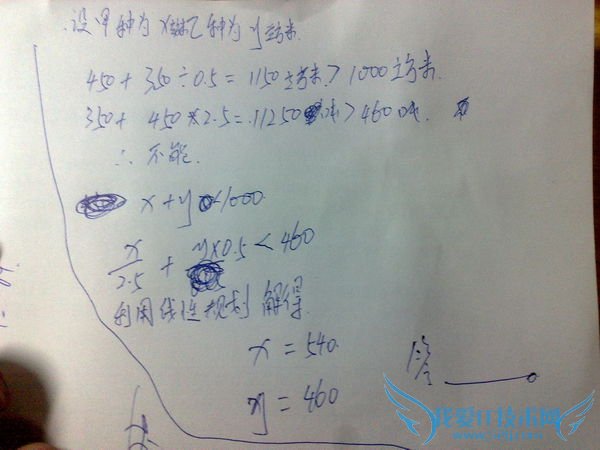 设甲种为x 乙种为y立方米
450+350÷0.5=1150立方米>1000立方米
350+450×2.5=11250吨>460吨.
∴不能.
x+y<1000
x/2.5 + y×0.5<460
利用线性规划解得
x=540.
y=460
答
我爱IT技术网